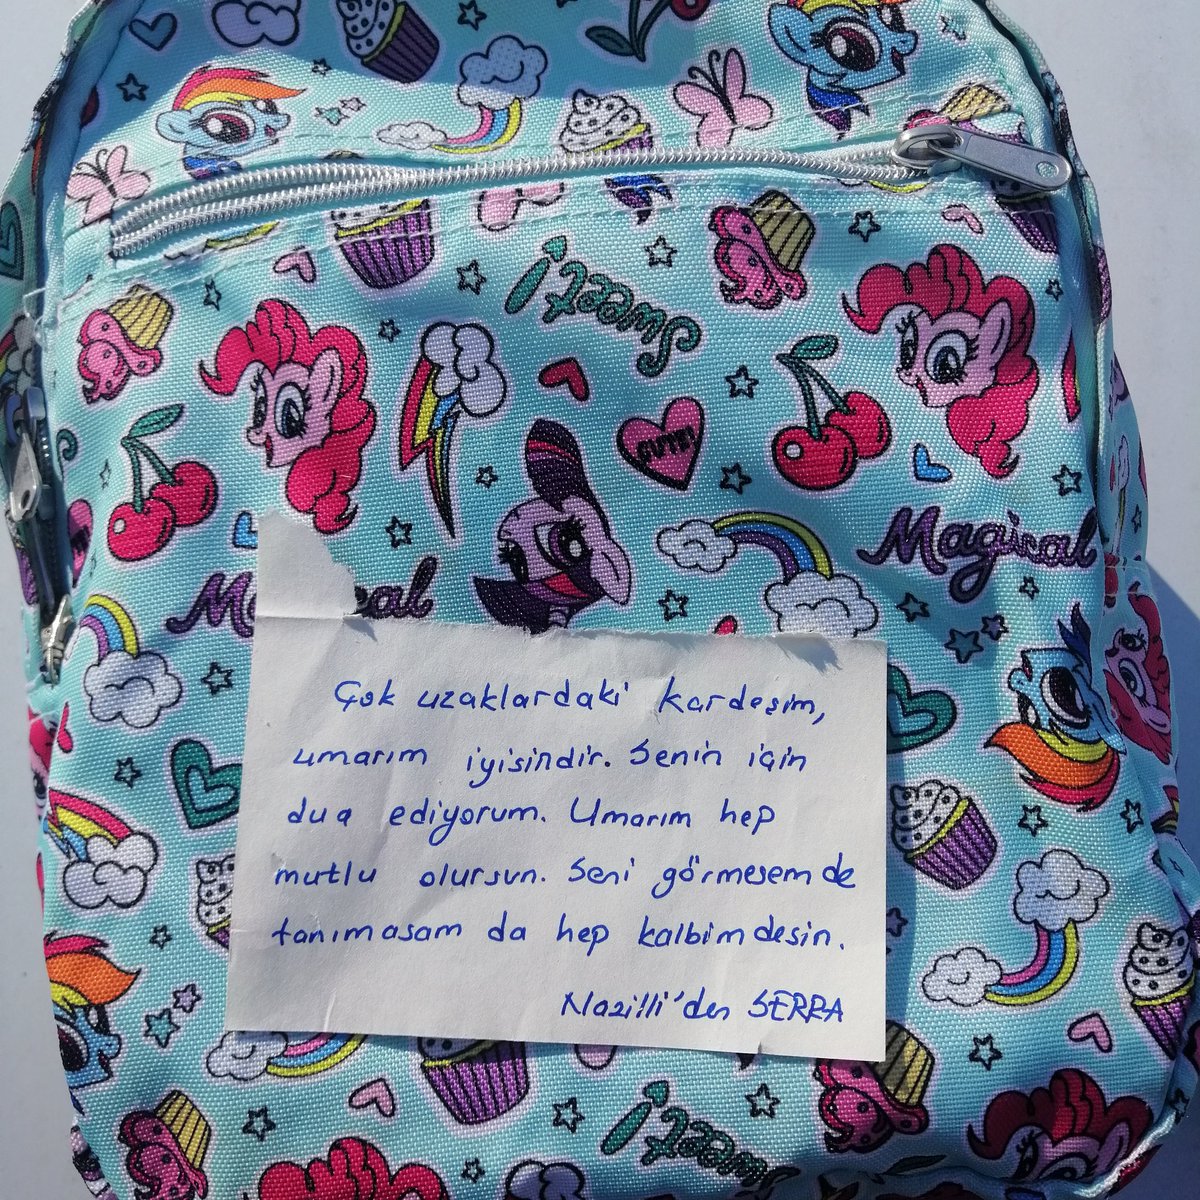 Sweet!
CUTE!
Magical
Magical
Çok uzaklardaki kardeşim,
umarım iyisindir. Senin için
dua ediyorum. Umarım hep
mutlu olursun. Seni görmesem de
tanımasam da hep kalbimdesin.
Nazilli'den SERRA
Sweet!